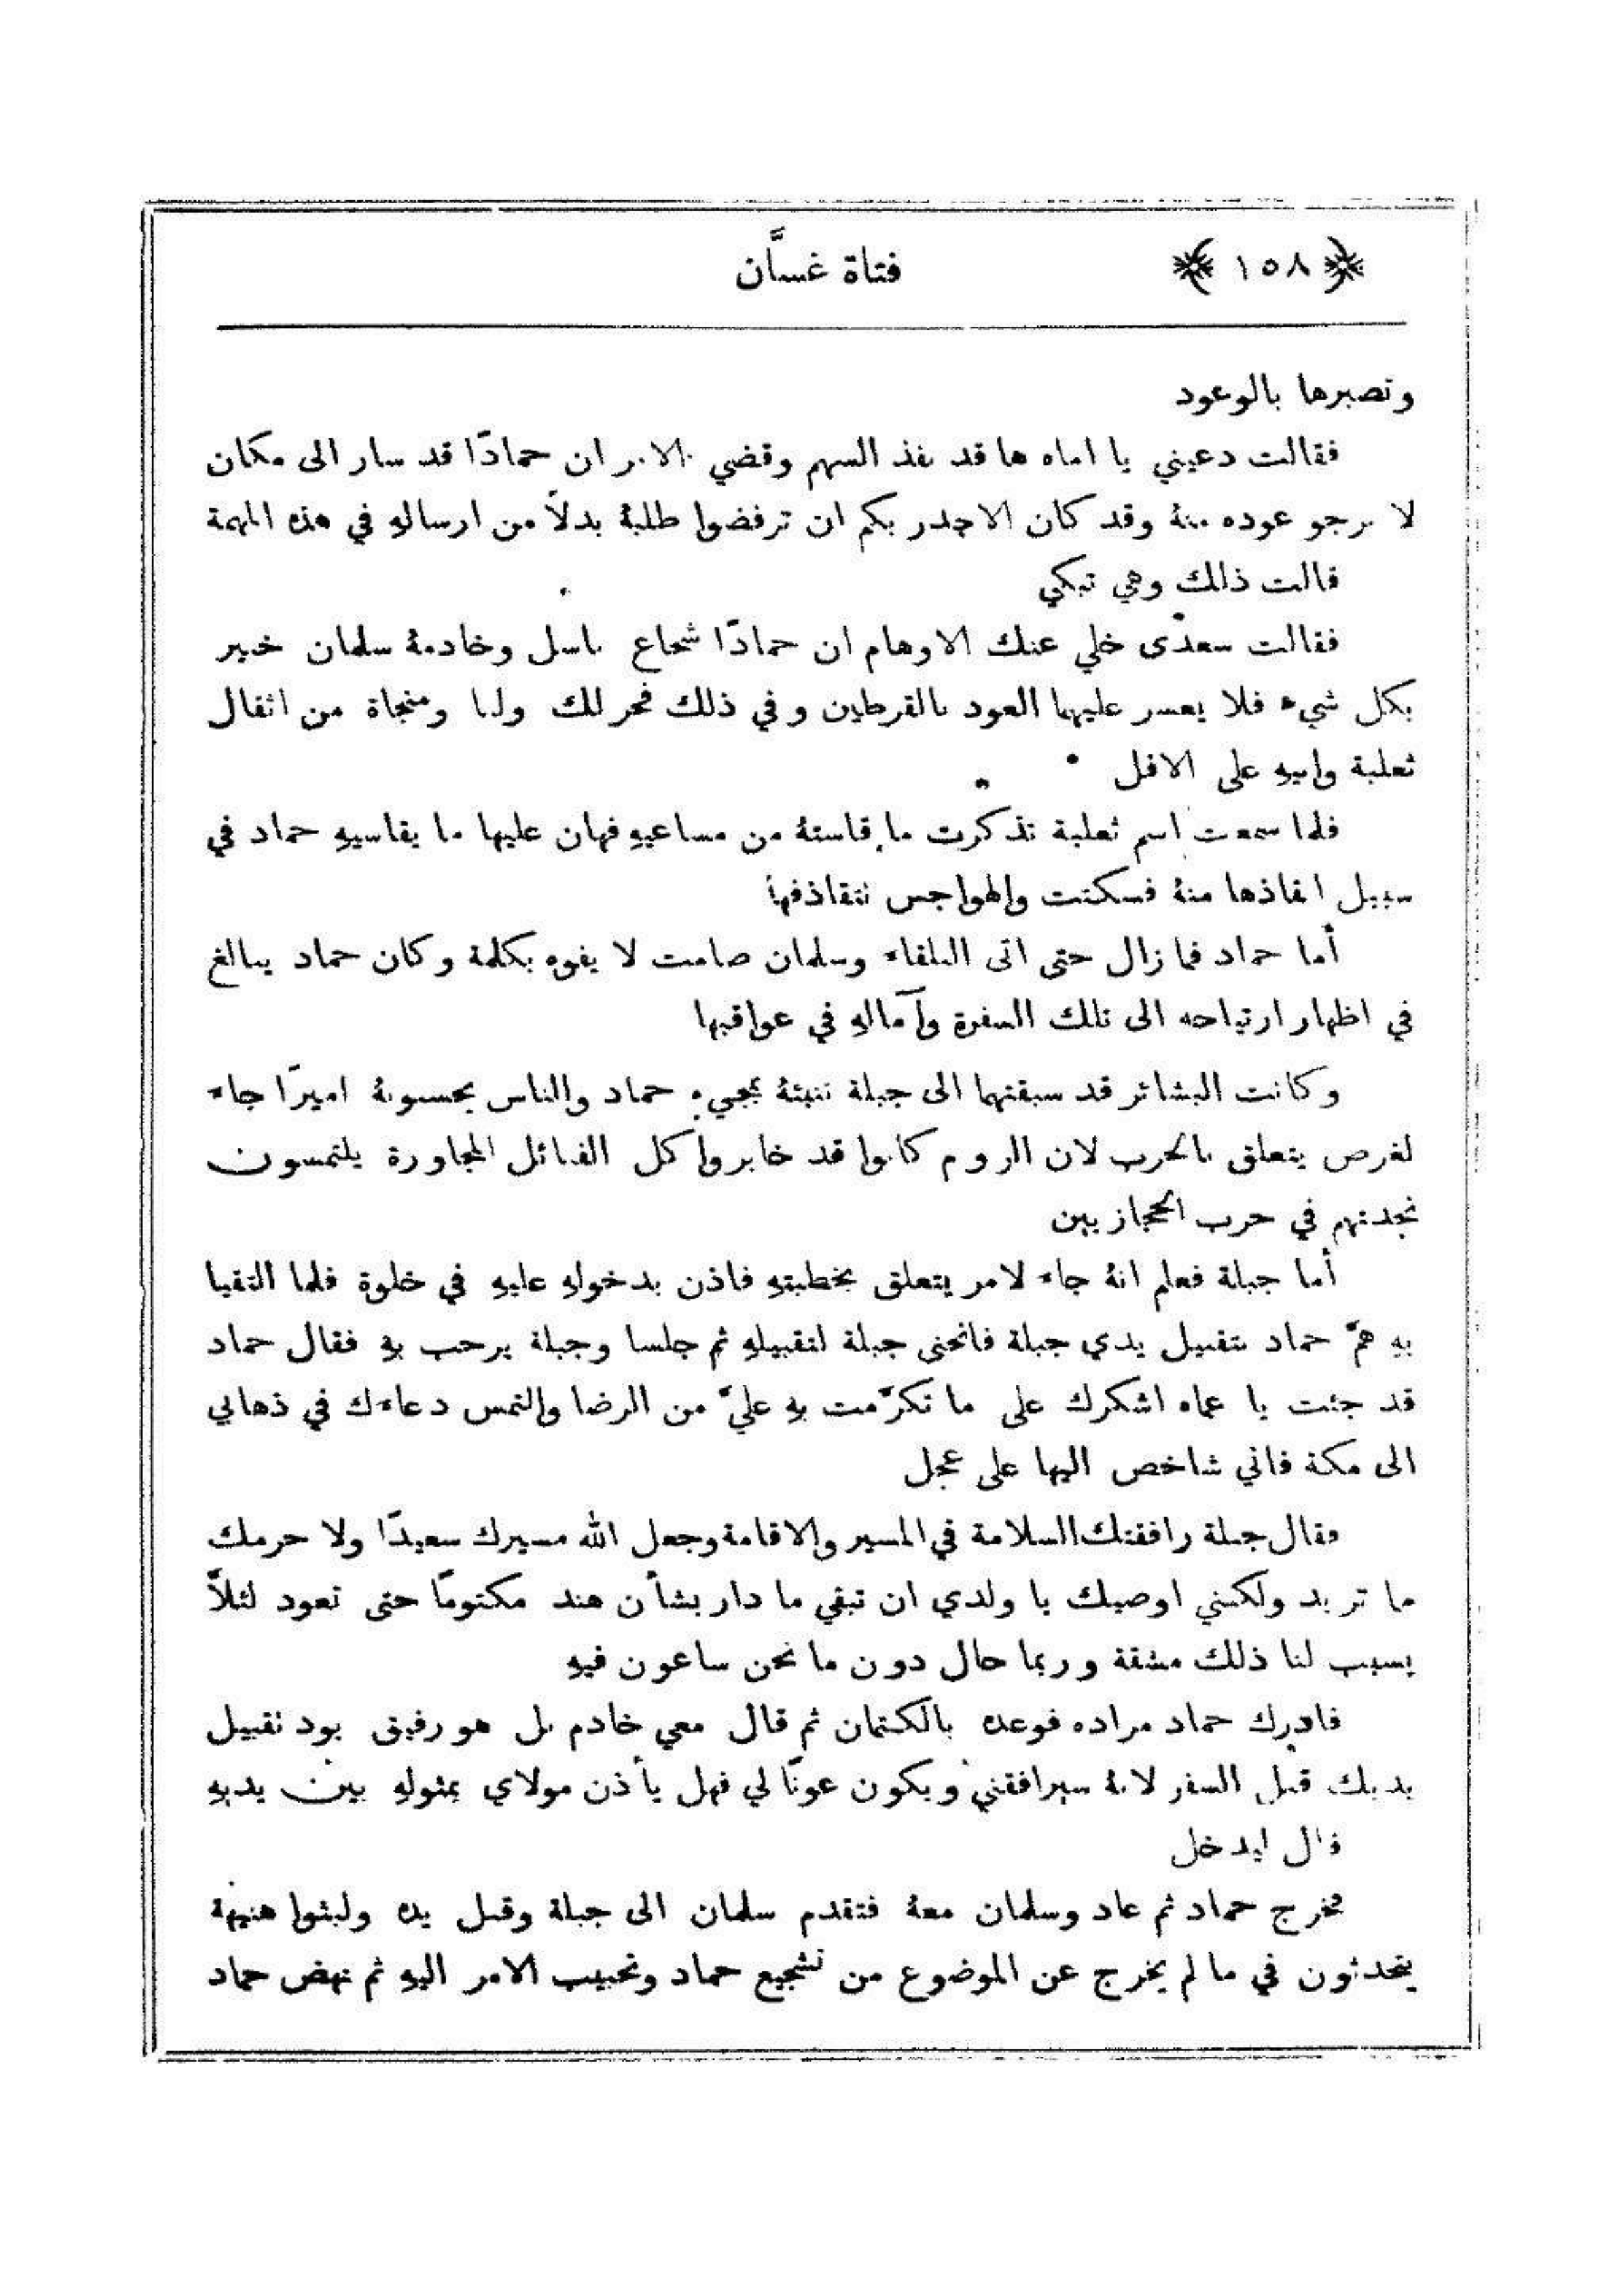 ﴿ ١٥٨ ﴾ فتاة غسَّان
وتصبرها بالوعود
فقالت دعيني يا اماه ها قد نفذ السهم وقضي الامر ان حمادًا قد سار الى مكان
لا نرجو عوده منهُ وقد كان الاجدر بكم ان ترفضوا طلبهُ بدلاً من ارسالهِ في هذه المهمة
قالت ذلك وهي تبكي
فقالت سعدى خلي عنك الاوهام ان حمادًا شجاع باسل وخادمهُ سلمان خبير
بكل شيء فلا يعسر عليهما العود بالقرطين وفي ذلك فخر لك ولنا ومنجاة من اثقال
ثعلبة وابيهِ على الاقل
فلما سمعت اسم ثعلبة تذكرت ما قاستهُ من مساعيهِ فهان عليها ما يقاسيهِ حماد في
سبيل انقاذها منهُ فسكتت والهواجس تتقاذفها
أما حماد فما زال حتى اتى البلقاء وسلمان صامت لا يفوه بكلمة وكان حماد يبالغ
في اظهار ارتياحه الى تلك السفرة وآمالهِ في عواقبها
وكانت البشائر قد سبقتهما الى جبلة تنبئهُ بمجيء حماد والناس يحسبونهُ اميرًا جاء
لغرض يتعلق بالحرب لان الروم كانوا قد خابروا كل القبائل المجاورة يلتمسون
نجدتهم في حرب الحجازيين
أما جبلة فعلم انهُ جاء لامر يتعلق بخطبتهِ فاذن بدخولهِ عليهِ في خلوة فلما التقيا
بهِ همَّ حماد بتقبيل يدي جبلة فانحنى جبلة لتقبيلهِ ثم جلسا وجبلة يرحب بهِ فقال حماد
قد جئت يا عماه اشكرك على ما تكرَّمت بهِ عليَّ من الرضا والتمس دعاءك في ذهابي
الى مكة فاني شاخص اليها على عجل
فقال جبلة رافقتك السلامة في المسير والاقامة وجعل الله مسيرك سعيدًا ولا حرمك
ما تريد ولكنني اوصيك يا ولدي ان تبقي ما دار بشأن هند مكتومًا حتى تعود لئلاَّ
يسبب لنا ذلك مشقة وربما حال دون ما نحن ساعون فيهِ
فادرك حماد مراده فوعده بالكتمان ثم قال معي خادم بل هو رفيق يود تقبيل
يديك قبل السفر لانهُ سيرافقني ويكون عونًا لي فهل يأذن مولاي بمثولهِ بين يديهِ
قال ليدخل
فخرج حماد ثم عاد وسلمان معهُ فتقدم سلمان الى جبلة وقبل يده ولبثوا هنيهة
يتحدثون في ما لم يخرج عن الموضوع من تشجيع حماد وتحبيب الامر اليهِ ثم نهض حماد